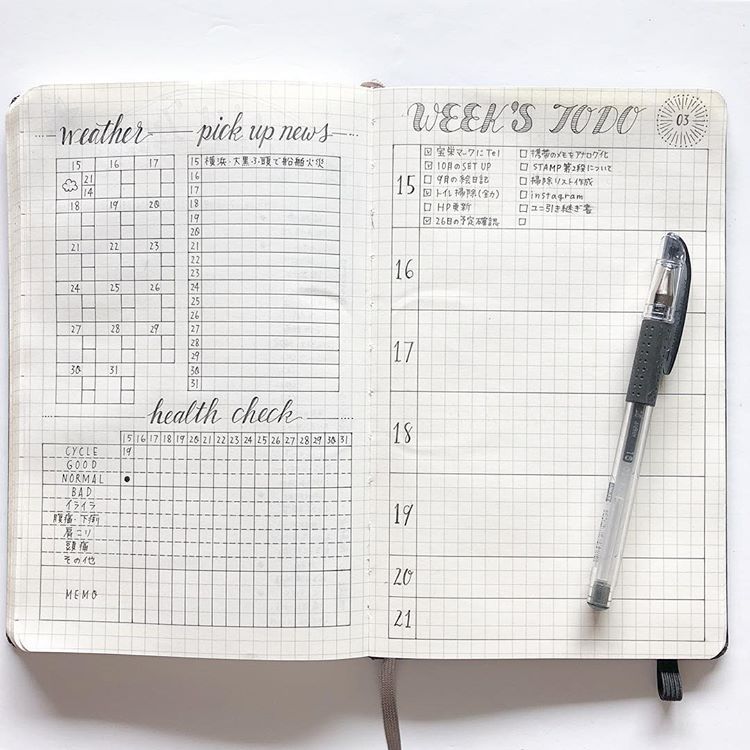 weather
15 16 17
21
14
18 19 20
21 22 23
24 25 26
27 28 29
30 31
pick up news
15 横浜・大黒ふ頭で船舶火災
16
17
18
19
20
21
22
23
24
25
26
27
28
29
30
31
health check
15 16 17 18 19 20 21 22 23 24 25 26 27 28 29 30 31
CYCLE 19
GOOD
NORMAL
BAD
イライラ
腹痛・下痢
肩こり
頭痛
その他
MEMO
WEEK'S TODO
03
15
宝巣マークにTel
10月のSET UP
9月の絵日記
トイレ掃除(全力)
HP更新
26日の予定確認
携帯のメモをアナログ化
STAMP第2段について
掃除リスト作成
instagram
ユニ引き継ぎ書
16
17
18
19
20
21